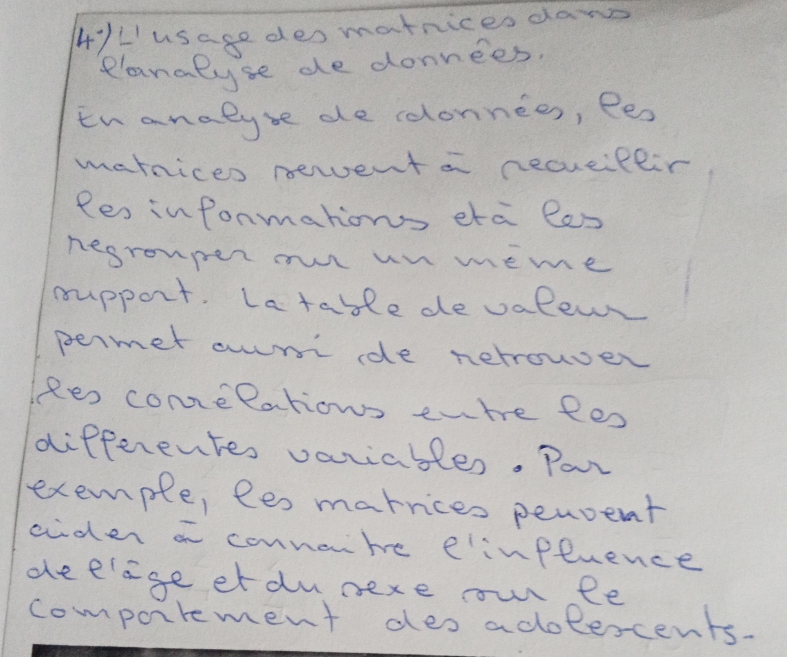 4°) L'usage des matrices dans
l'analyse de données.
En analyse de données, les
matrices servent à recueillir
les informations et à les
regrouper sur un même
support. La table de valeur
permet aussi de retrouver
les corrélations entre les
differentes variables. Par
exemple, les matrices peuvent
aider à connaitre l'influence
de l'âge et du sexe sur le
comportement des adolescents.